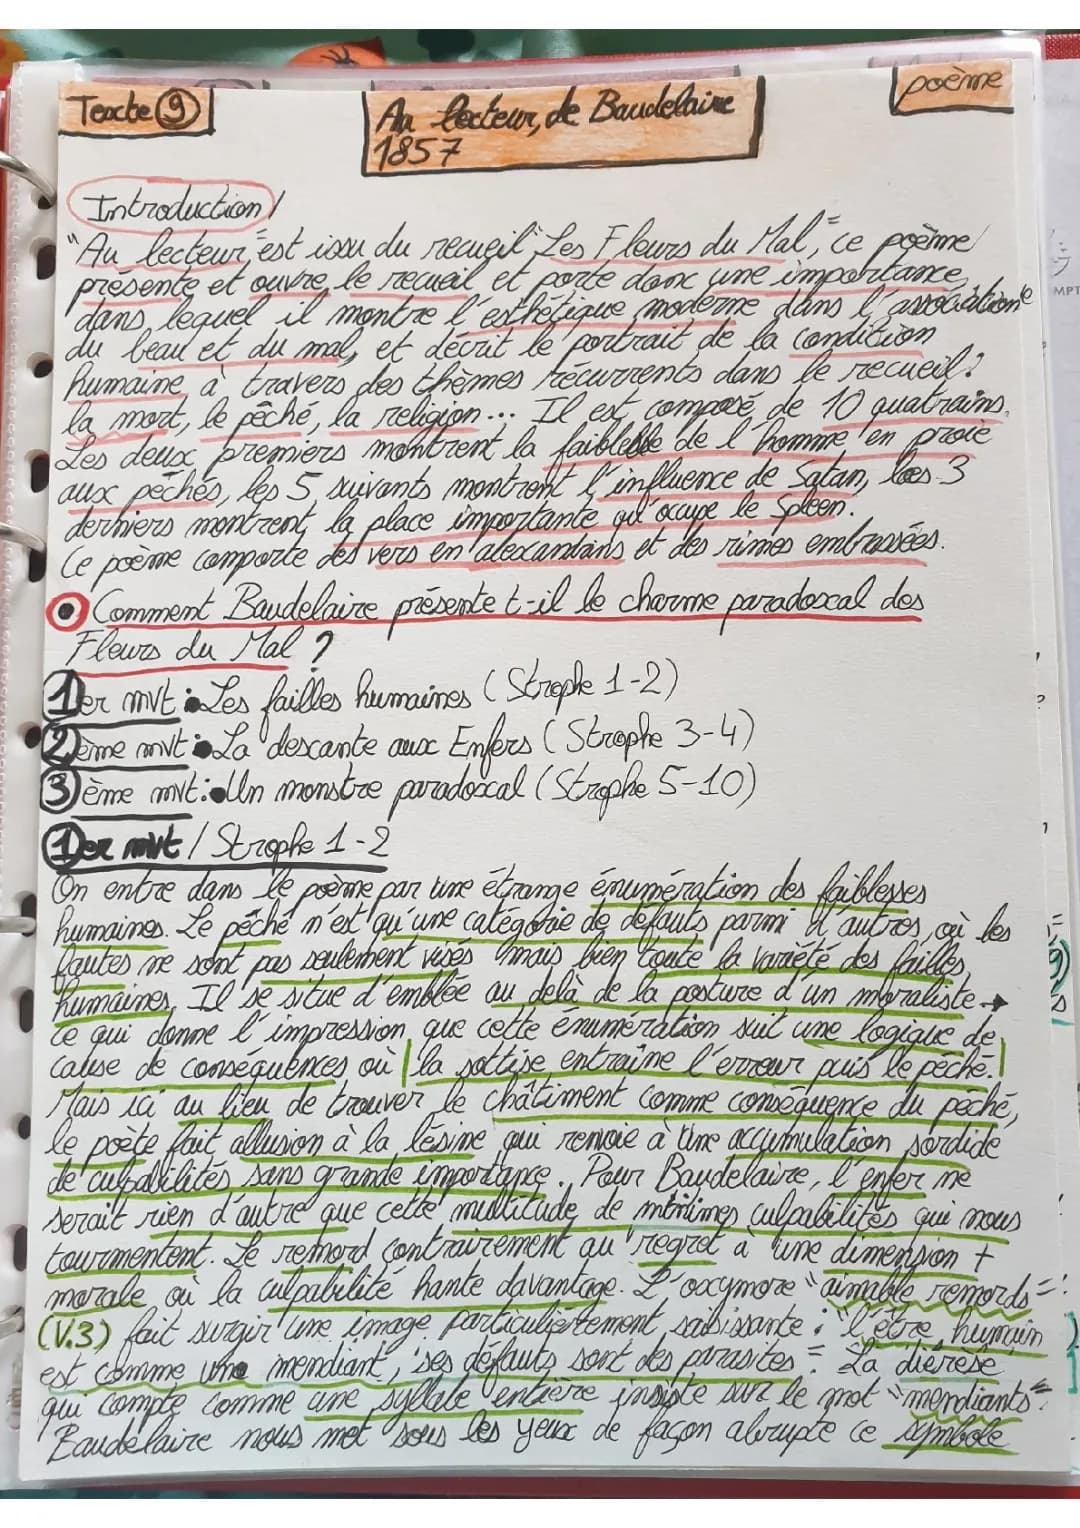 Texte 9
Au lecteur, de Baudelaire
1857
poème
Introduction /
"Au lecteur, est issu du recueil "Les Fleurs du Mal", ce poème
présente et ouvre le recueil et porte donc une importance
dans lequel il montre l'esthétique moderne dans l'association
du beau et du mal, et décrit le portrait de la condition
humaine à travers des thèmes récurrents dans le recueil :
la mort, le pêché, la religion... Il est composé de 10 quatrains.
Les deux premiers montrent la faiblesse de l'homme en proie
aux pêchés, les 5 suivants montrent l'influence de Satan, les 3
derniers montrent la place importante qu'occupe le Spleen.
Ce poème comporte des vers en alexandrins et des rimes embrassées.
Comment Baudelaire présente t-il le charme paradoxal des
Fleurs du Mal ?
1er mvt : Les failles humaines (Strophe 1-2)
2ème mvt : La descante aux Enfers (Strophe 3-4)
3ème mvt : Un monstre paradoxal (Strophe 5-10)
1er mvt / Strophe 1-2
On entre dans le poème par une étrange énumération des faiblesses
humaines. Le pêché n'est qu'une catégorie de défauts parmi d'autres, où les
fautes ne sont pas seulement visés mais bien toute la variété des failles
humaines. Il se situe d'emblée au delà de la posture d'un moraliste →
ce qui donne l'impression que cette énumération suit une logique de
cause de conséquences où la sottise entraîne l'erreur puis le pêché.
Mais ici au lieu de trouver le châtiment comme conséquence du pêché,
le poète fait allusion à la lésine qui renvoie à une accumulation sordide
de culpabilités sans grande importance. Pour Baudelaire, l'enfer ne
serait rien d'autre que cette multitude de minimes culpabilités qui nous
tourmentent. Le remord contrairement au regret à une dimension +
morale où la culpabilité hante davantage. L'oxymore "aimable remords"
(V.3) fait surgir une image particulièrement saisissante : "l'être humain
est comme une mendiant, ses défauts sont des parasites". La diérèse
qui compte comme une syllabe entière insiste sur le mot "mendiants".
Baudelaire nous met sous les yeux de façon abrupte ce symbole
MPT